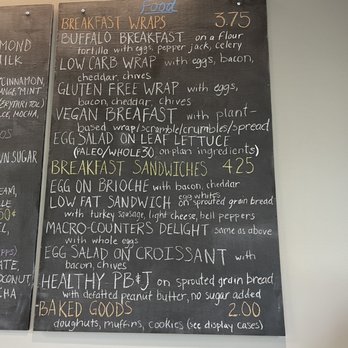 MOND
ILK
CINNAMON,
MINT
(ERYTHRITOL)
CE, MOCHA,
OS
WN SUGAR
AM,
LE
50¢
PPS)
ATE,
OCONUT,
CHA
Food
BREAKFAST WRAPS 3.75
BUFFALO BREAKFAST on a flour
tortilla with eggs, pepper jack, celery
LOW CARB WRAP with eggs, bacon,
cheddar, chives
GLUTEN FREE WRAP with eggs,
bacon, cheddar, chives
VEGAN BREAFAST with plant-
based wrap/scramble/crumbles/spread
EGG SALAD ON LEAF LETTUCE
(PALEO/WHOLE30 on plan ingredients)
BREAKFAST SANDWICHES 4.25
EGG ON BRIOCHE with bacon, cheddar
egg whites
LOW FAT SANDWICH on sprouted grain bread
with turkey sausage, light cheese, bell peppers
MACRO-COUNTER'S DELIGHT same as above
with whole eggs
EGG SALAD ON CROISSANT with
bacon, chives
HEALTHY PB&J on sprouted grain bread
with defatted peanut butter, no sugar added
BAKED GOODS 2.00
doughnuts, muffins, cookies (see display cases)